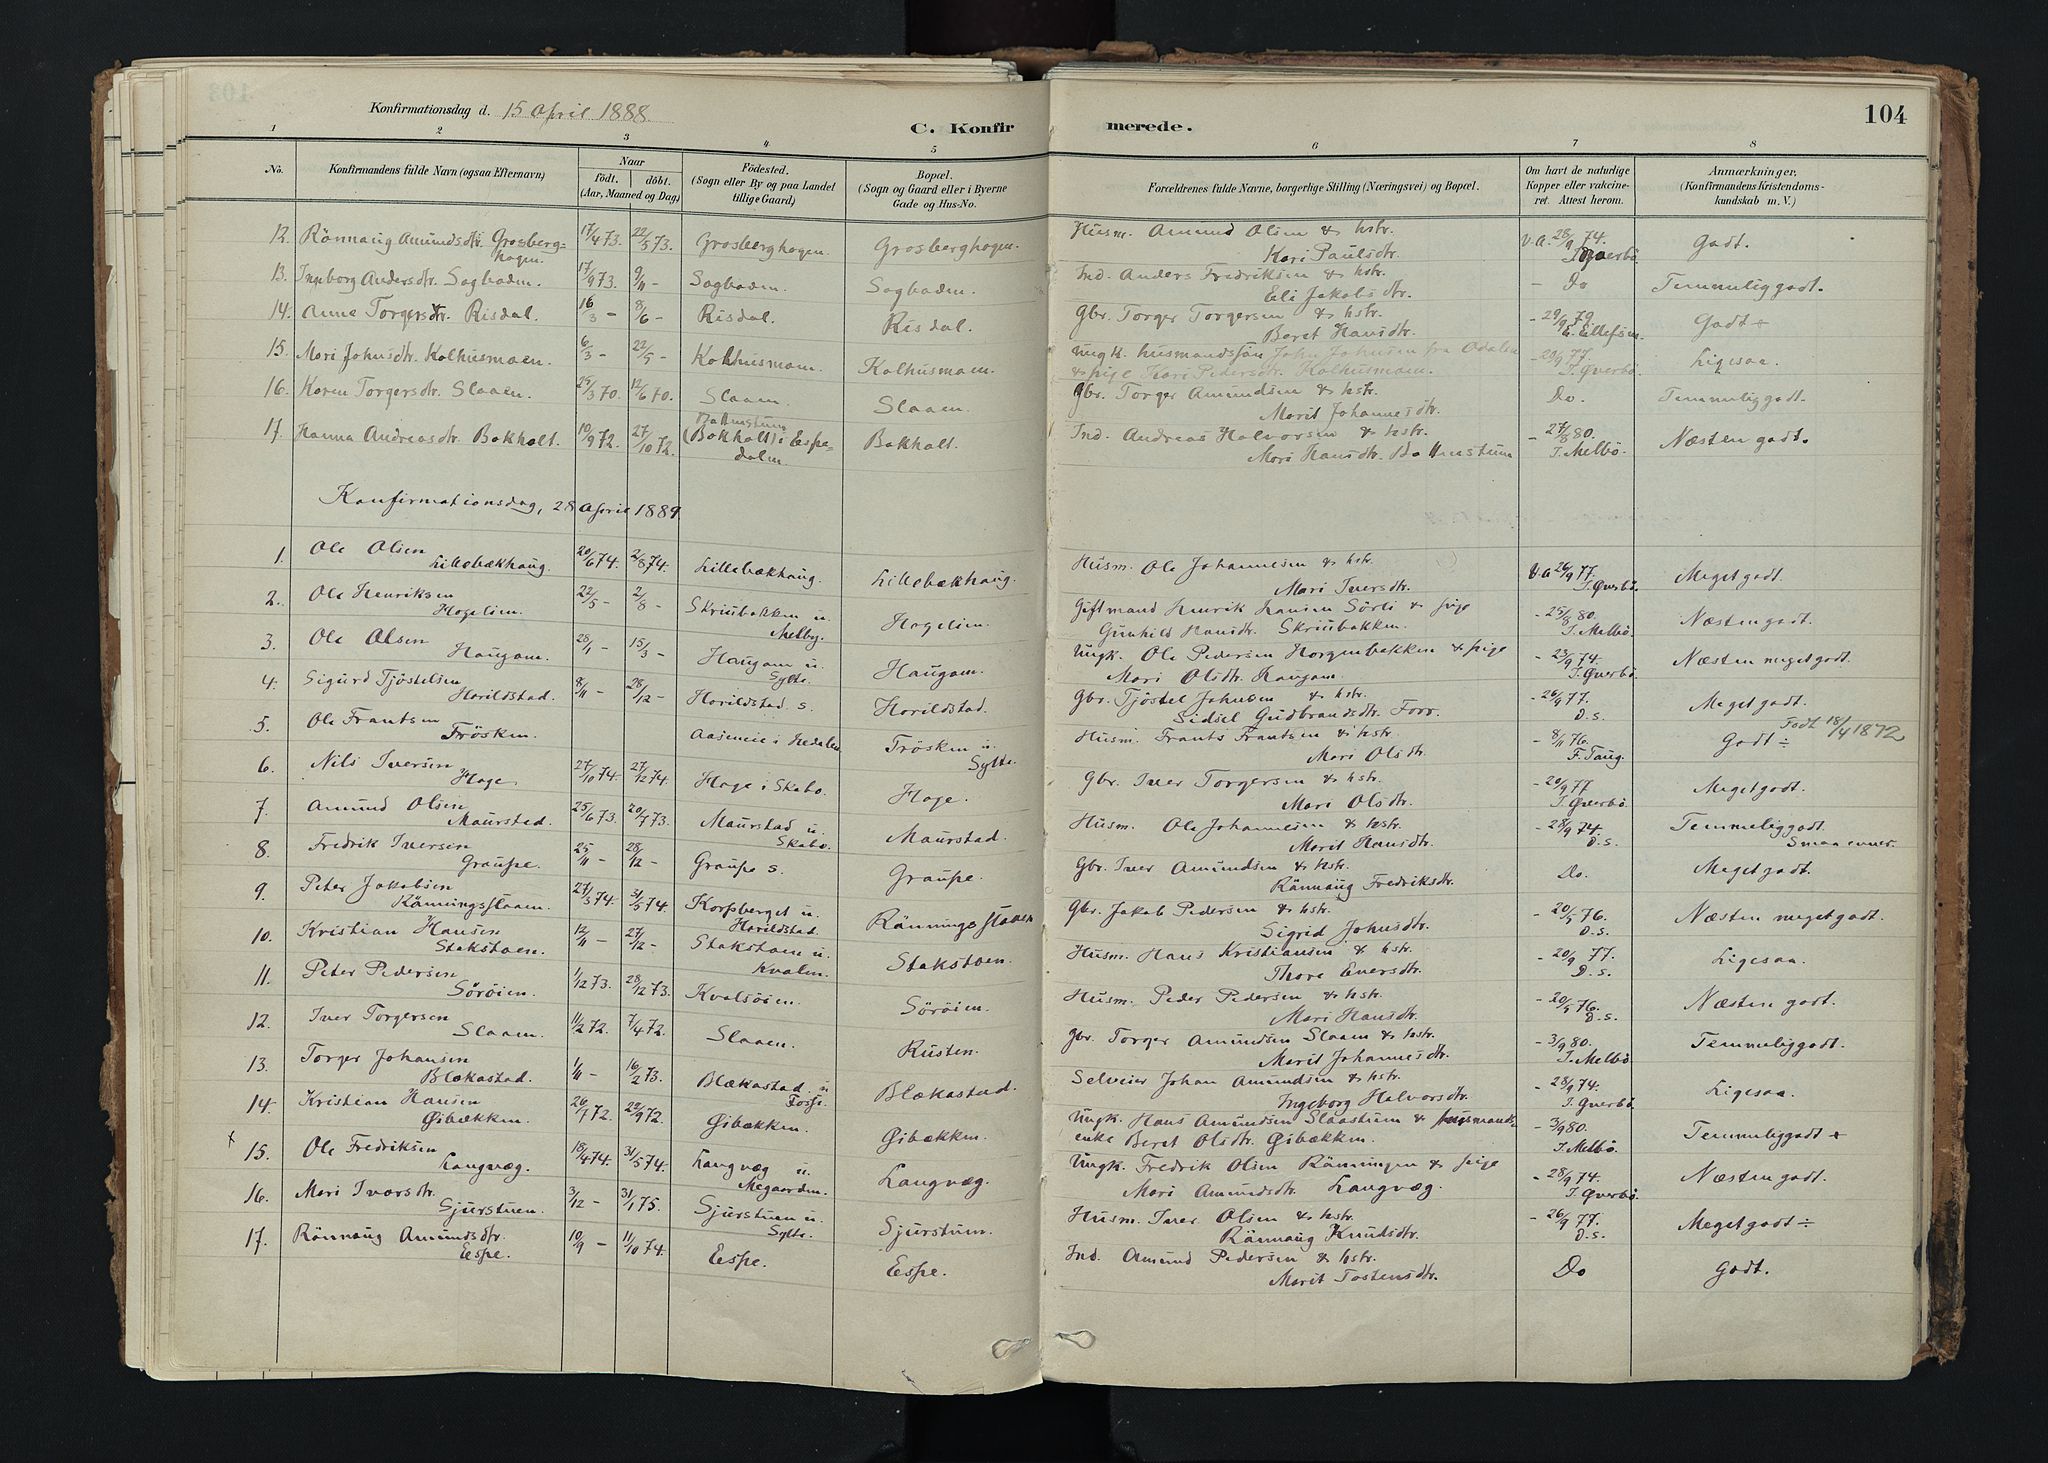 Konfirmationsdag d. 15 April 1888.
C. Konfirmerede.
104
1 2 3 4 5 6 7 8
No. Konfirmandens fulde Navn (ogsaa Efternavn) Naar födt. döbt. (Aar, Maaned og Dag) Födested. (Sogn eller By og paa Landet tillige Gaard) Bopæl. (Sogn og Gaard eller i Byerne Gade og Hus-No. Forældrenes fulde Navne, borgerlige Stilling (Næringsvei) og Bopæl. Om havt de naturlige Kopper eller vakcineret. Attest herom. Anmærkninger, (Konfirmandens Kristendomskundskab m. V.)
12. Rönnaug Amundsdtr. Grosberghagen. 17/4 73. 22/5 73. Grosberghagen. Grosberghagen. Husm. Amund Olsen & hstr. Kari Paulsdtr. v.a. 28/9 74. I. Qverbö. Godt.
13. Ingeborg Andersdtr. Sagbaden. 17/9 73. 9/11 – Sagbaden. Sagbaden. Ind. Anders Fredriksen & hstr. Eli Jakobsdtr. – Do Temmelig godt.
14. Anne Torgersdtr. Risdal. 16/3 – 8/6 – Risdal. Risdal. Gbr. Torger Torgersen & hstr. Beret Hansdtr. – 29/9 79 E. Ellefsen. Godt ÷
15. Mari Johnsdtr. Kolhusmoen. 6/3 – 22/5 – Kolhusmoen. Kolhusmoen. Ungk. husmandssön John Johnsen fra Odalen & pige Kari Pedersdtr. Kolhusmoen. – 20/9 77. I. Qverbö. Ligesaa.
16. Karen Torgersdtr. Slaaen. 25/3 70. 12/6 70. Slaaen. Slaaen. Gbr. Torger Amundsen & hstr. Marit Johannesdtr. Do. Temmelig godt.
17. Hanna Andreasdtr. Bakholt. 10/9 72. 27/10 72. (Bakholt) i Espedalen. Bakholt. Ind. Andreas Halvorsen & hstr. Mari Hansdtr. – 27/8 80. I. Melbö. Næsten godt.
Konfirmationsdag, 28 April 1889.
1. Ole Olsen Lillebækhaug. 20/6 74. 2/8 74. Lillebækhaug. Lillebækhaug. Husm. Ole Johannesen & hstr. Mari Iversdtr. v.a 26/9 77. I. Qverbö. Meget godt.
2. Ole Henriksen Hogelien. 22/5 – 2/8 – Skriubakken u. Melby. Hogelien. Giftmand Henrik Hansen Sörli & pige Gunhild Hansdtr. Skriubakken. – 25/8 80. I. Melbö. Næsten godt.
3. Ole Olsen Haugam. 28/1 – 15/3 – Haugam u. Sylte. Haugam. Ungk. Ole Pedersen Horgenbakken & pige Mari Olsdtr. Haugam. – 23/9 74. I. Qverbö. Næsten meget godt.
4. Sigurd Tjöstelsen Horildstad. 8/11 – 28/12 – Horildstad s. Horildstad. Gbr. Tjöstel Johnsen & hstr. Sidsel Gudbrandsdtr. Forr. – 26/9 77. D.s. Meget godt.
5. Ole Frantsen Tröskem. Aasmeie i Hedalen Tröskem u. Sylte. Husm. Frants Frantsen & hstr. Mari Olsdtr. – 8/11 76. F. Taug. Godt ÷ Födt 18/4 1872
6. Nils Iversen Hage. 27/10 74. 27/12 74. Hage i Skabo. Hage. Gbr. Iver Torgersen & hstr. Mari Olsdtr. – 20/9 77 I. Qverbö. Meget godt.
7. Amund Olsen Maurstad. 25/6 73. 20/7 73. Maurstad u. Skabo. Maurstad. Husm. Ole Johannesen & hstr. Marit Hansdtr. – 28/9 74. D.s. Temmelig godt. Smaa evner.
8. Fredrik Iversen Graupe. 25/11 – 28/12 – Graupe s. Graupe. Gbr. Iver Amundsen & hstr. Rönnaug Fredriksdtr. Do. Meget godt.
9. Peter Jakobsen Rönningsslaaen. 27/3 74. 31/5 74. Korpberget u. Horildstad. Rönningsslaaen Gbr. Jakob Pedersen & hstr. Sigrid Johnsdtr. – 20/5 76. D.s. Næsten meget godt.
10. Kristian Hansen Stakstoen. 12/11 – 27/12 – Stakstoen u. Kvalen. Stakstoen. Husm. Hans Kristiansen & hstr. Thore Eversdtr. – 20/9 77. D.s. Ligesaa.
11. Peter Pedersen Söröien. 1/12 73. 28/12 73. Kvalsöien. Söröien. Husm. Peder Pedersen & hstr. Mari Hansdtr. – 20/5 76. D.s. Næsten godt.
12. Iver Torgersen Slaaen. 11/2 72. 7/4 72. Slaaen. Rusten. Gbr. Torger Amundsen Slaaen & hstr. Marit Johannesdtr. – 3/9 80. I. Melbö. Temmelig godt.
13. Torger Johansen Blækastad. 1/11 – 16/2 73. Blækastad u Fosse. Blækastad. Selveier Johan Amundsen & hstr. Ingeborg Halvorsdtr. – 28/9 74. I. Qverbö. Ligesaa.
14. Kristian Hansen Öibækken. 26/7 72. 22/9 72. Öibækken. Öibækken. Ungk. Hans Amundsen Slaastuen & husmandsenke Beret Olsdtr. Öibækken. – 3/9 80. I. Melbö. Temmelig godt +
+ 15. Ole Fredriksen Langvæg. 18/4 74. 31/5 74. Langvæg u. Megaarden. Langvæg. Ungk. Fredrik Olsen Rönningen & pige Mari Amundsdtr. Langvæg. – 28/9 74. I. Qverbö. Næsten godt.
16. Mari Ivarsdtr. Sjurstuen. 3/12 – 31/1 75. Sjurstuen u. Sylte. Sjurstuen. Husm. Iver Olsen & hstr. Rönnaug Knudsdtr. – 26/9 77. D.s. Meget godt ÷
17. Rönnaug Amundsdtr. Espe. 10/9 – 11/10 74. Espe. Espe. Ind. Amund Pedersen & hstr. Marit Tostensdtr. Do Godt.